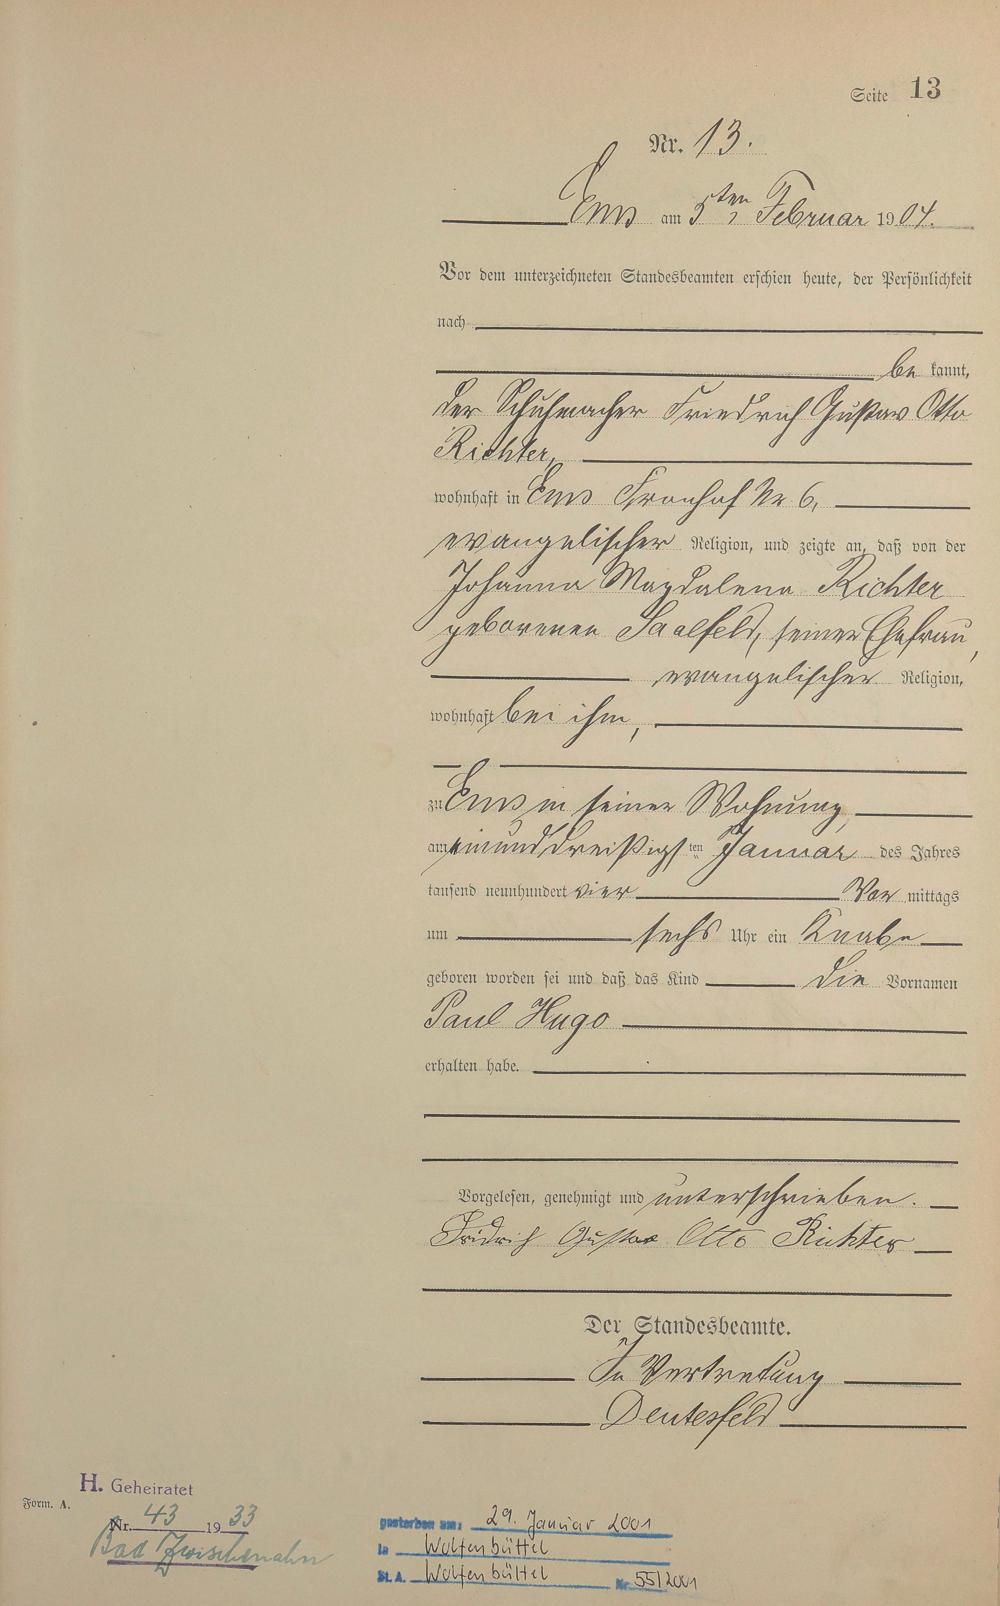 Seite 13
Nr. 13.
Ems am 5ten Februar 1904.
Vor dem unterzeichneten Standesbeamten erschien heute, der Persönlichkeit
nach
be kannt,
der Schuhmacher Friedrich Gustav Otto
Richter,
wohnhaft in Ems Fronhof Nr 6,
evangelischer Religion, und zeigte an, daß von der
Johanna Magdalena Richter
geborenen Saalfeld, seiner Ehefrau,
evangelischer Religion,
wohnhaft bei ihm,
zu Ems in seiner Wohnung,
am einunddreißigsten Januar des Jahres
tausend neunhundert vier Vor mittags
um sechs Uhr ein Knabe
geboren worden sei und daß das Kind die Vornamen
Paul Hugo
erhalten habe.
Vorgelesen, genehmigt und unterschrieben.
Fridrich Gustav Otto Richter
Der Standesbeamte.
In Vertretung
Deutesfeld
H. Geheiratet
Form. A.
Nr. 43 1933
Bad Zwischenahn
gestorben am: 29. Januar 2001
in Wolfenbüttel
St. A. Wolfenbüttel Nr 55/2001